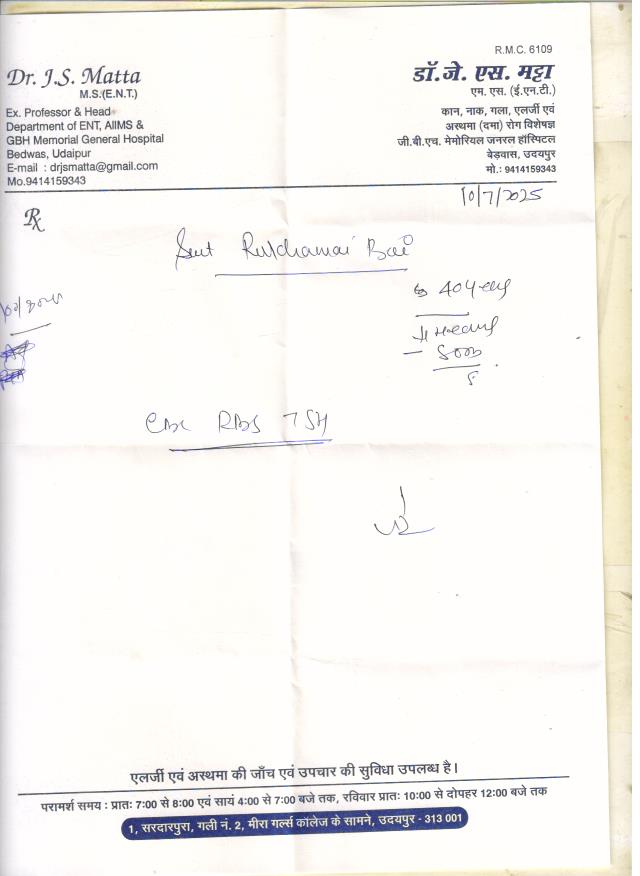 R.M.C. 6109
Dr. J.S. Matta
M.S.(E.N.T.)
Ex. Professor & Head
Department of ENT, AIIMS &
GBH Memorial General Hospital
Bedwas, Udaipur
E-mail : drjsmatta@gmail.com
Mo.9414159343
डॉ.जे. एस. मट्टा
एम. एस. (ई.एन.टी.)
कान, नाक, गला, एलर्जी एवं
अस्थमा (दमा) रोग विशेषज्ञ
जी.बी.एच. मेमोरियल जनरल हॉस्पिटल
बेड़वास, उदयपुर
मो.: 9414159343
10/7/2025
Rx
Smt Bai
40
CBC RBS TSH
एलर्जी एवं अस्थमा की जाँच एवं उपचार की सुविधा उपलब्ध है।
परामर्श समय : प्रातः 7:00 से 8:00 एवं सायं 4:00 से 7:00 बजे तक, रविवार प्रातः 10:00 से दोपहर 12:00 बजे तक
1, सरदारपुरा, गली नं. 2, मीरा गर्ल्स कॉलेज के सामने, उदयपुर - 313 001